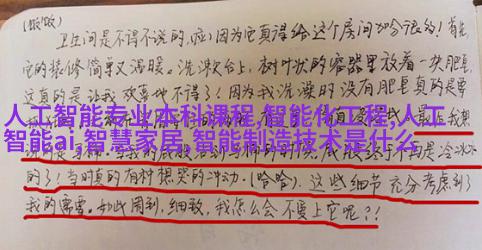 (嗷!嗷)
卫生间是不得不说的,啦!因为它真得给这个房间加分很多!首先,
它的装修简单又温暖。洗漱台上,树叶状的容器里放着一块肥皂,
这真的是让我欢喜地不得了!因为我洗澡时没有肥皂真的是
人工智能专业本科课程,智能化工程,人工
智能ai,智慧家居,智能制造技术是什么
的了!当时真的有种想哭的冲动,(哈哈),这些细节充分考虑到了
我的需要。如此周到,细致,我怎么会不爱上它呢?!